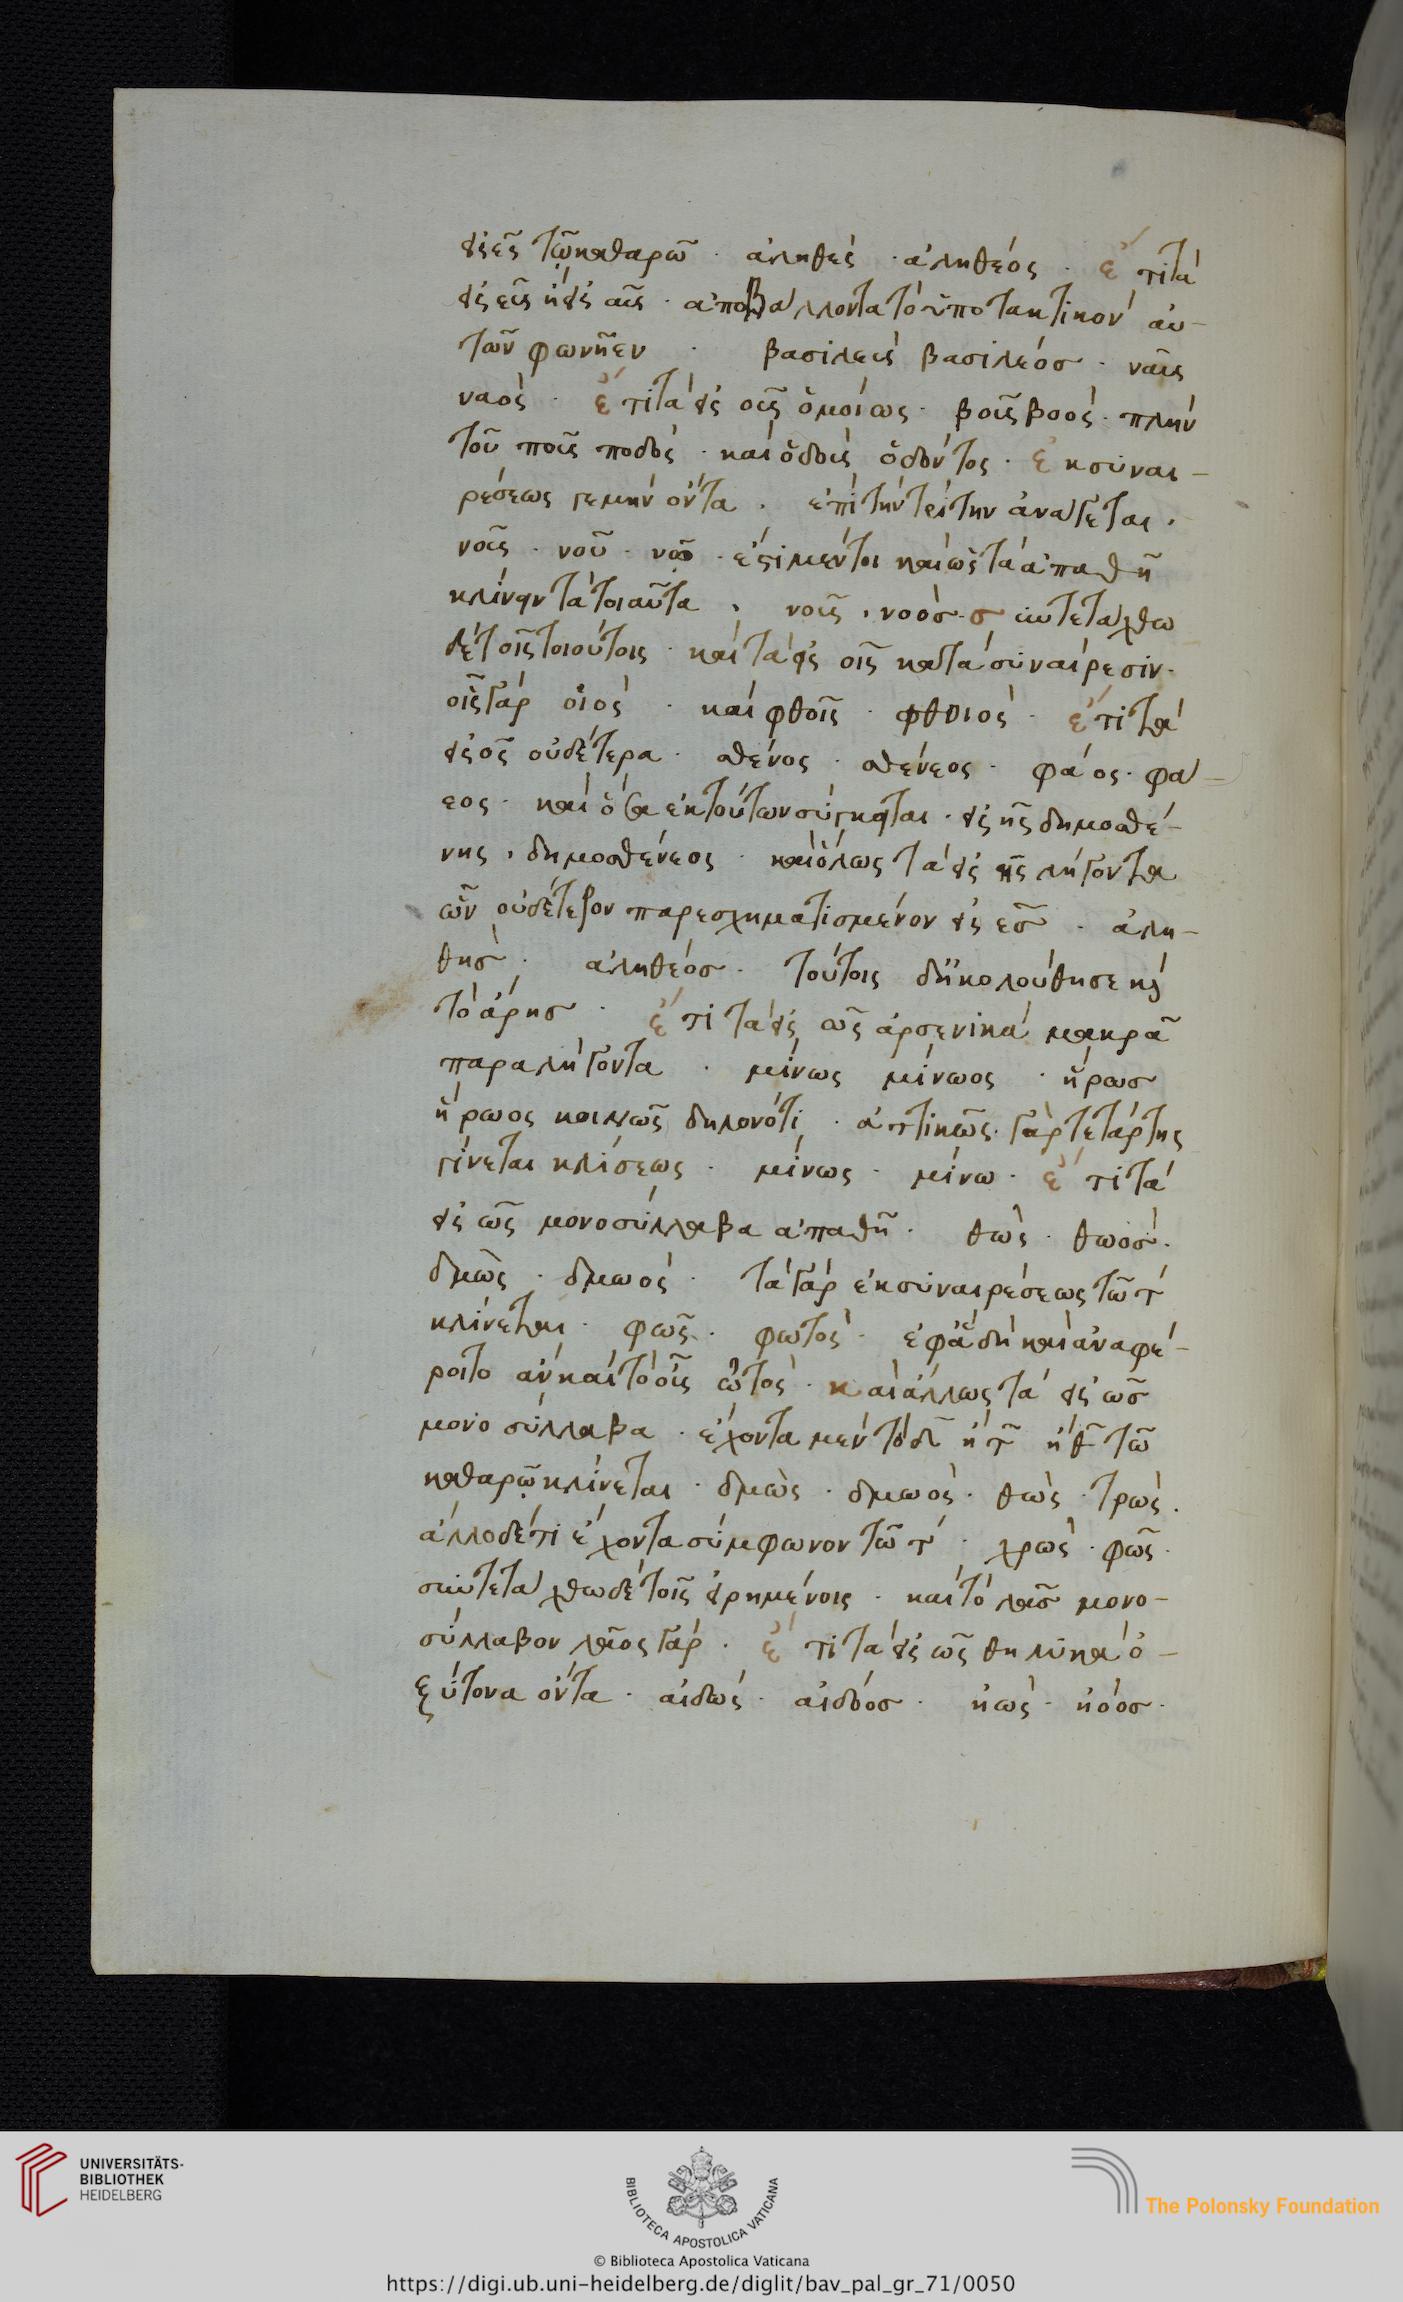 εἰς ες τῷ καθαρῷ · ἀληθές · ἀληθέος · ἔτι τὰ
εἰς εὺς ἢ εἰς αῦς · ἀποβάλλοντα τὸ ὑποτακτικὸν αὐ-
τῶν φωνῆεν · βασιλεὺς βασιλέοσ · ναῦς
ναός · ἔτι τὰ εἰς οῦς ὁμοίως · βοῦς βοός · πλὴν
τοῦ ποῦς ποδός · καὶ ὀδοὺς ὀδόντος · ἐκ συναι-
ρέσεως γε μὴν ὄντα · ἐπὶ τὴν τρίτην ἀνάγεται ·
νοῦς · νοῦ · νῷ · ἔστι μέντοι καὶ ὡς τὰ ἀπαθῆ
κλίνειν τὰ τοιαῦτα · νοῦς · νοόσ · συντετάχθω
δὲ τοῖς τοιούτοις · καὶ τὰ εἰς οις κατὰ συναίρεσιν ·
οἶς γὰρ οἰός · καὶ φθοῖς · φθοιός · ἔτι τὰ
εἰς ος οὐδέτερα · σθένος · σθένεος · φάος · φά-
εος · καὶ ὅσα ἐκ τούτων σύγκειται · εἰς ης δημοσθέ-
νης · δημοσθένεος · καὶ ὅλως τὰ εἰς ης λήγοντα
ὧν οὐδέτερον παρεσχηματισμένον εἰς εσ · ἀλη-
θὴσ · ἀληθέοσ · τούτοις δ᾽ ἠκολούθησε καὶ
τὸ ἄρησ · ἔτι τὰ εἰς ως ἀρσενικὰ μακρᾷ
παραλήγοντα · μίνως μίνωος · ἥρωσ
ἥρωος κοινῶς δηλονότι · ἀττικῶς γὰρ τετάρτης
γίνεται κλίσεως · μίνως · μίνω · ἔτι τὰ
εἰς ως μονοσύλλαβα ἀπαθῆ · θὼς · θωόσ ·
δμὼς · δμωός · τὰ γὰρ ἐκ συναιρέσεως τῷ τ
κλίνεται · φῶς · φωτός · ἐφ᾽ ἃ δὴ καὶ ἀναφέ-
ροιτο ἂν καὶ τὸ οὖς ὠτός · καὶ ἄλλως τὰ εἰς ωσ
μονοσύλλαβα · ἔχοντα μὲν τὸ δ ἢ τ ἢ θ τῷ
καθαρῷ κλίνεται · δμὼς · δμωός · θὼς · τρώς ·
ἄλλο δέ τι ἔχοντα σύμφωνον τῷ τ · χρώς · φῶς ·
συντετάχθω δὲ τοῖς εἰρημένοις · καὶ τὸ λᾶσ μονο-
σύλλαβον λᾶος γάρ · ἔτι τὰ εἰς ως θηλυκὰ ὀ-
ξύτονα ὄντα · αἰδώς · αἰδόοσ · ἠώς · ἠόοσ ·
UNIVERSITÄTS-
BIBLIOTHEK
HEIDELBERG
BIBLIOTECA APOSTOLICA VATICANA
The Polonsky Foundation
© Biblioteca Apostolica Vaticana
https://digi.ub.uni-heidelberg.de/diglit/bav_pal_gr_71/0050